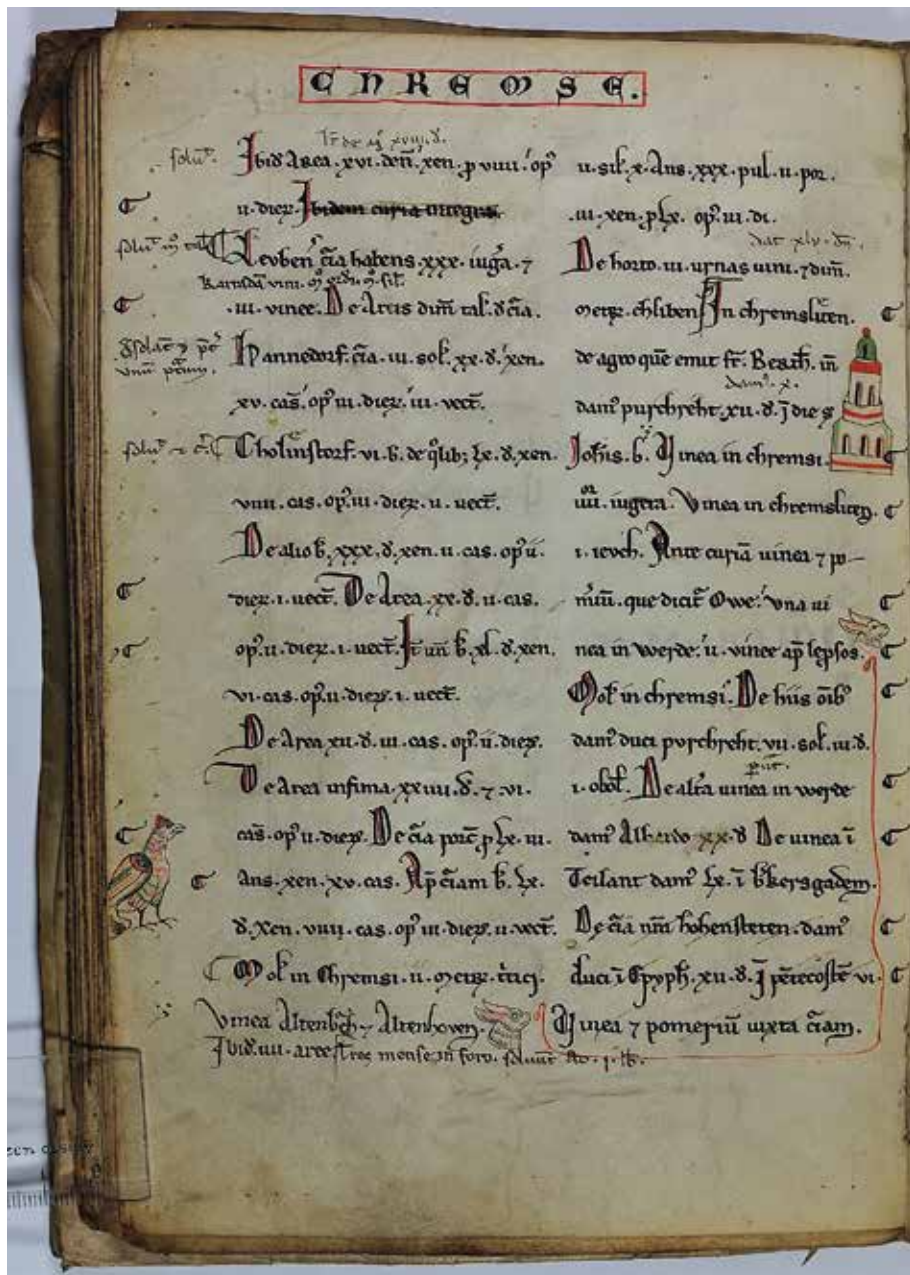 CHREMSE.
Ibid Area . xvi . den̄ . xen . ꝑ viiii . op⁹
ii . dieꝝ . Ibidem curia integra.
Leoben̄ c̄ia habens . xxx . iug̃a . ⁊
. iii . vinee . De Areis dim̄ tal . đ c̄ia .
Hannedorf . c̄ia . iii . sol . xx . đ . xen .
xv . cas̄ . op⁹ iii . dieꝝ . iii . vect̄ .
Cholinstorf . vi . b . de q̄lib; lx . đ . xen .
viiii . cas . op⁹ . iii . dieꝝ . ii . vect̄ .
De alio b̄ . xxx . đ . xen . ii . cas . op⁹ ii .
dieꝝ . i . vect̄ . De Area . xx . đ . ii . cas .
op⁹ . ii . dieꝝ . i . vect̄ . It̄ un̄ b̄ . xl . đ . xen .
vi . cas . op⁹ . ii . dieꝝ . i . vect̄ .
De Area xii . đ . iii . cas . op⁹ . ii . dieꝝ .
De Area infima . xxiiii . đ . ⁊ . vi .
cas̄ . op⁹ ii . dieꝝ . De c̄ia porc̄ ꝑ lx . iii .
Ans . xen . xv . cas . Ap̄ c̄iam b̄ . lx .
đ . xen . viiii . cas . op⁹ iii . dieꝝ . ii . vect̄ .
Mol̄ in Chremsi . ii . metꝝ . t̄tici .
Vinea Altenb̄ch ⁊ Altenhoven .
Ibid . iiii . aree tres mense in foro . solvunt
ii . sil . x . Ans . xxx . pul . ii . por .
. iii . xen . ꝑ lx . op⁹ . iii . di .
dat xlv . dn̄ .
De horto . iii . urnas vini . ⁊ dim̄ .
metꝝ . chliben In chremsliten .
de agro quē emit fr̄ . Bertħ . in
dam⁹ . x .
dam⁹ purchreht . xii . đ . ī die s̄
Joh̄is . b . Vinea in chremsi .
iiii . iugera . Vinea in chremsliten .
. i . ievch . Ante curiā vinea ⁊ po
m̄iū . que dicit̄ Owe . una vi
nea in werde . ii . vinee ap̄ lepsos .
Mol̄ in chremsi . De hiis ōib⁹
dam⁹ duci purchreht . vii . sol . iii . đ .
. i . obol̄ . De alt̄a vinea in werde
dam⁹ Alhardo xx . đ De vinea ī
Teilant dam⁹ lx . ī b̄kersgadem .
De c̄ia nr̄a hohensteten . dam⁹
duci ī Epyph̄ . xii . đ . ī pētecostē vi .
Vinea ⁊ pomeriū iuxta c̄iam .